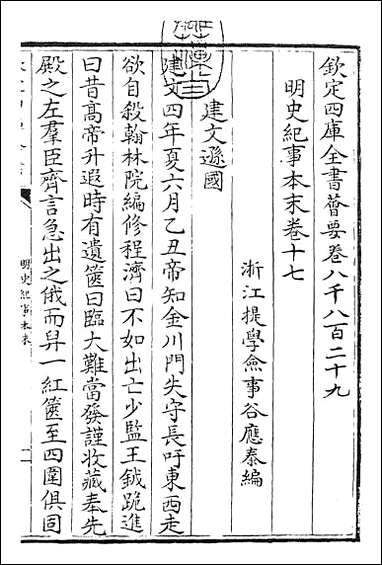 欽定四庫全書薈要卷八千八百二十九
明史紀事本末卷十七
浙江提學僉事谷應泰編
建文遜國
建文四年夏六月乙丑帝知金川門失守長吁東西走
欲自殺翰林院編修程濟曰不如出亡少監王鉞跪進
曰昔高帝升遐時有遺篋曰臨大難當發謹收藏奉先
殿之左羣臣齊言急出之俄而舁一紅篋至四圍俱固
明史紀事本末